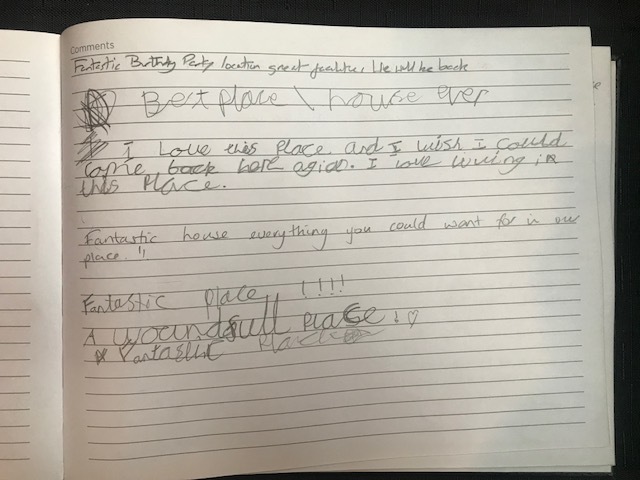 Comments
Fantastic Birthday Party location great facilities, We will be back
Best place \ house ever
I Love this Place and I wish I could
come back here agian. I love living in
this Place.
Fantastic house everything you could want for in one
place. !!
Fantastic place !!!!
A woundsfull place! ♡
Fantastic place